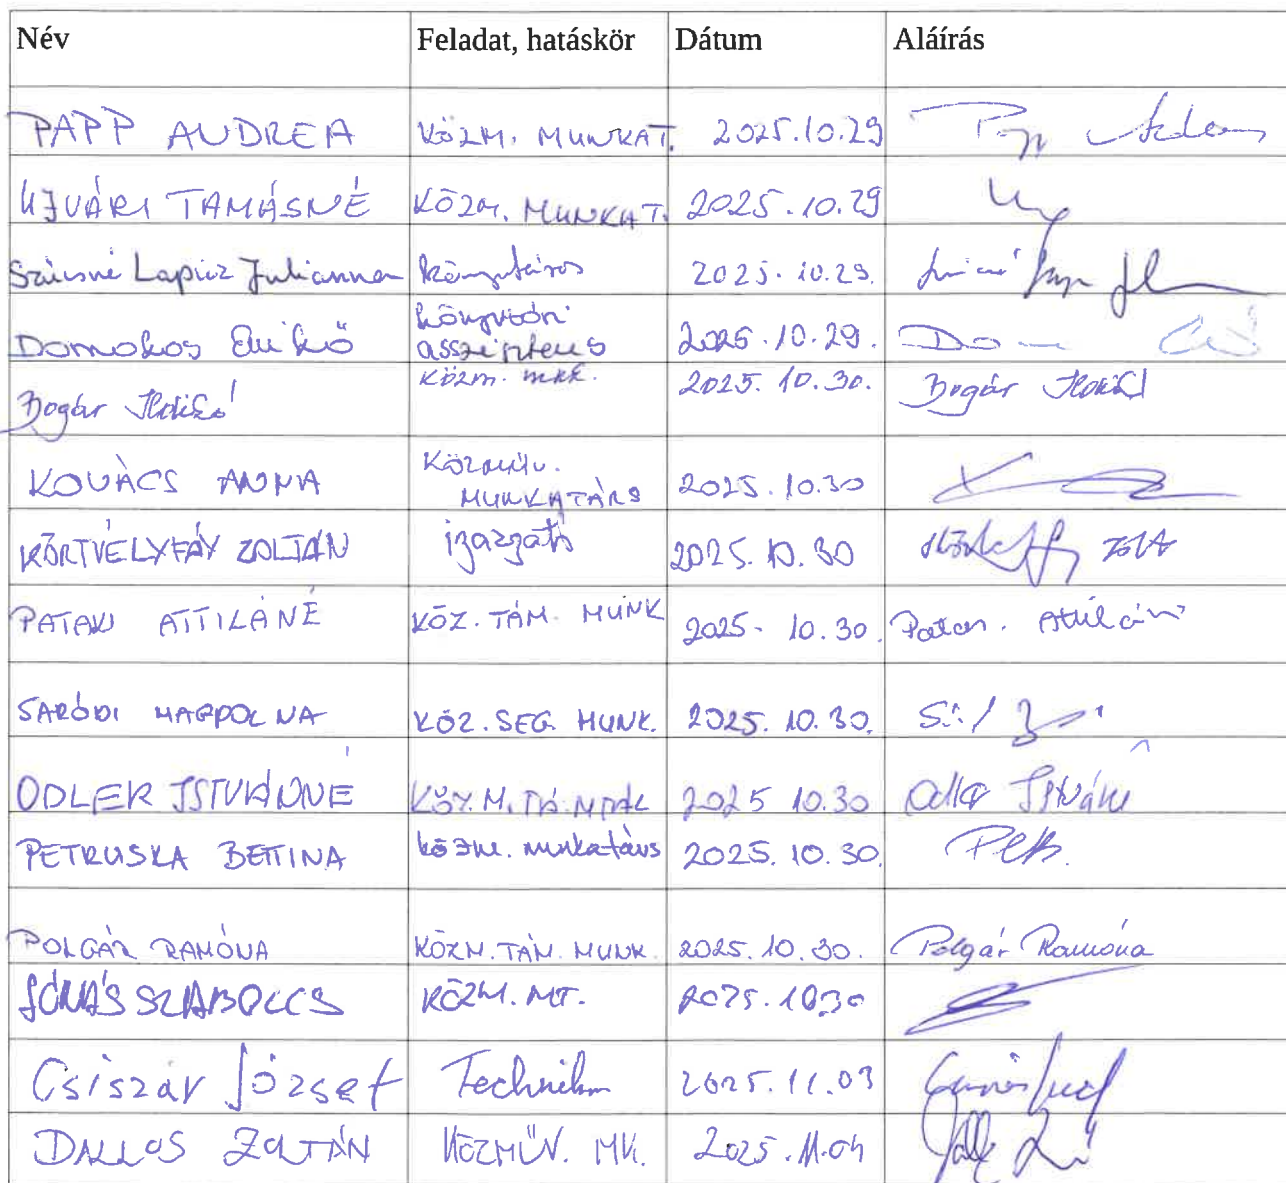 Név Feladat, hatáskör Dátum Aláírás
PAPP ANDREA KÖZM. MUNKAT. 2025.10.29
UJVÁRI TAMÁSNÉ KÖZM. MUNKAT. 2025.10.29
Szücsné Lapicz Julianna könyvtáros 2025.10.29.
Domokos Enikő könyvtári asszisztens 2025.10.29.
Bogár Ildikó közm. mkk. 2025.10.30. Bogár Ildikó
KOVÁCS ANNA Közműv. MUNKATÁRS 2025.10.30
KÖRTVÉLYFÁY ZOLTÁN igazgató 2025.10.30
PATAKI ATTILÁNÉ KÖZ. TÁM. MUNK 2025. 10.30. Attiláné
SARÓDI MAGDOLNA KÖZ. SEG. MUNK. 2025. 10.30.
ODLER ISTVÁNNÉ 2025 10.30 Odler Istvánné
PETRUSKA BETTINA közm. munkatárs 2025.10.30.
POLGÁR RAMÓNA KÖZM. TÁM. MUNK 2025.10.30. Polgár Ramóna
JÓNÁS SZABOLCS KÖZM. MT. 2025.10.30
Csiszár József 2025.11.03
DALLOS ZOLTÁN KÖZMŰV. MK. 2025.11.04